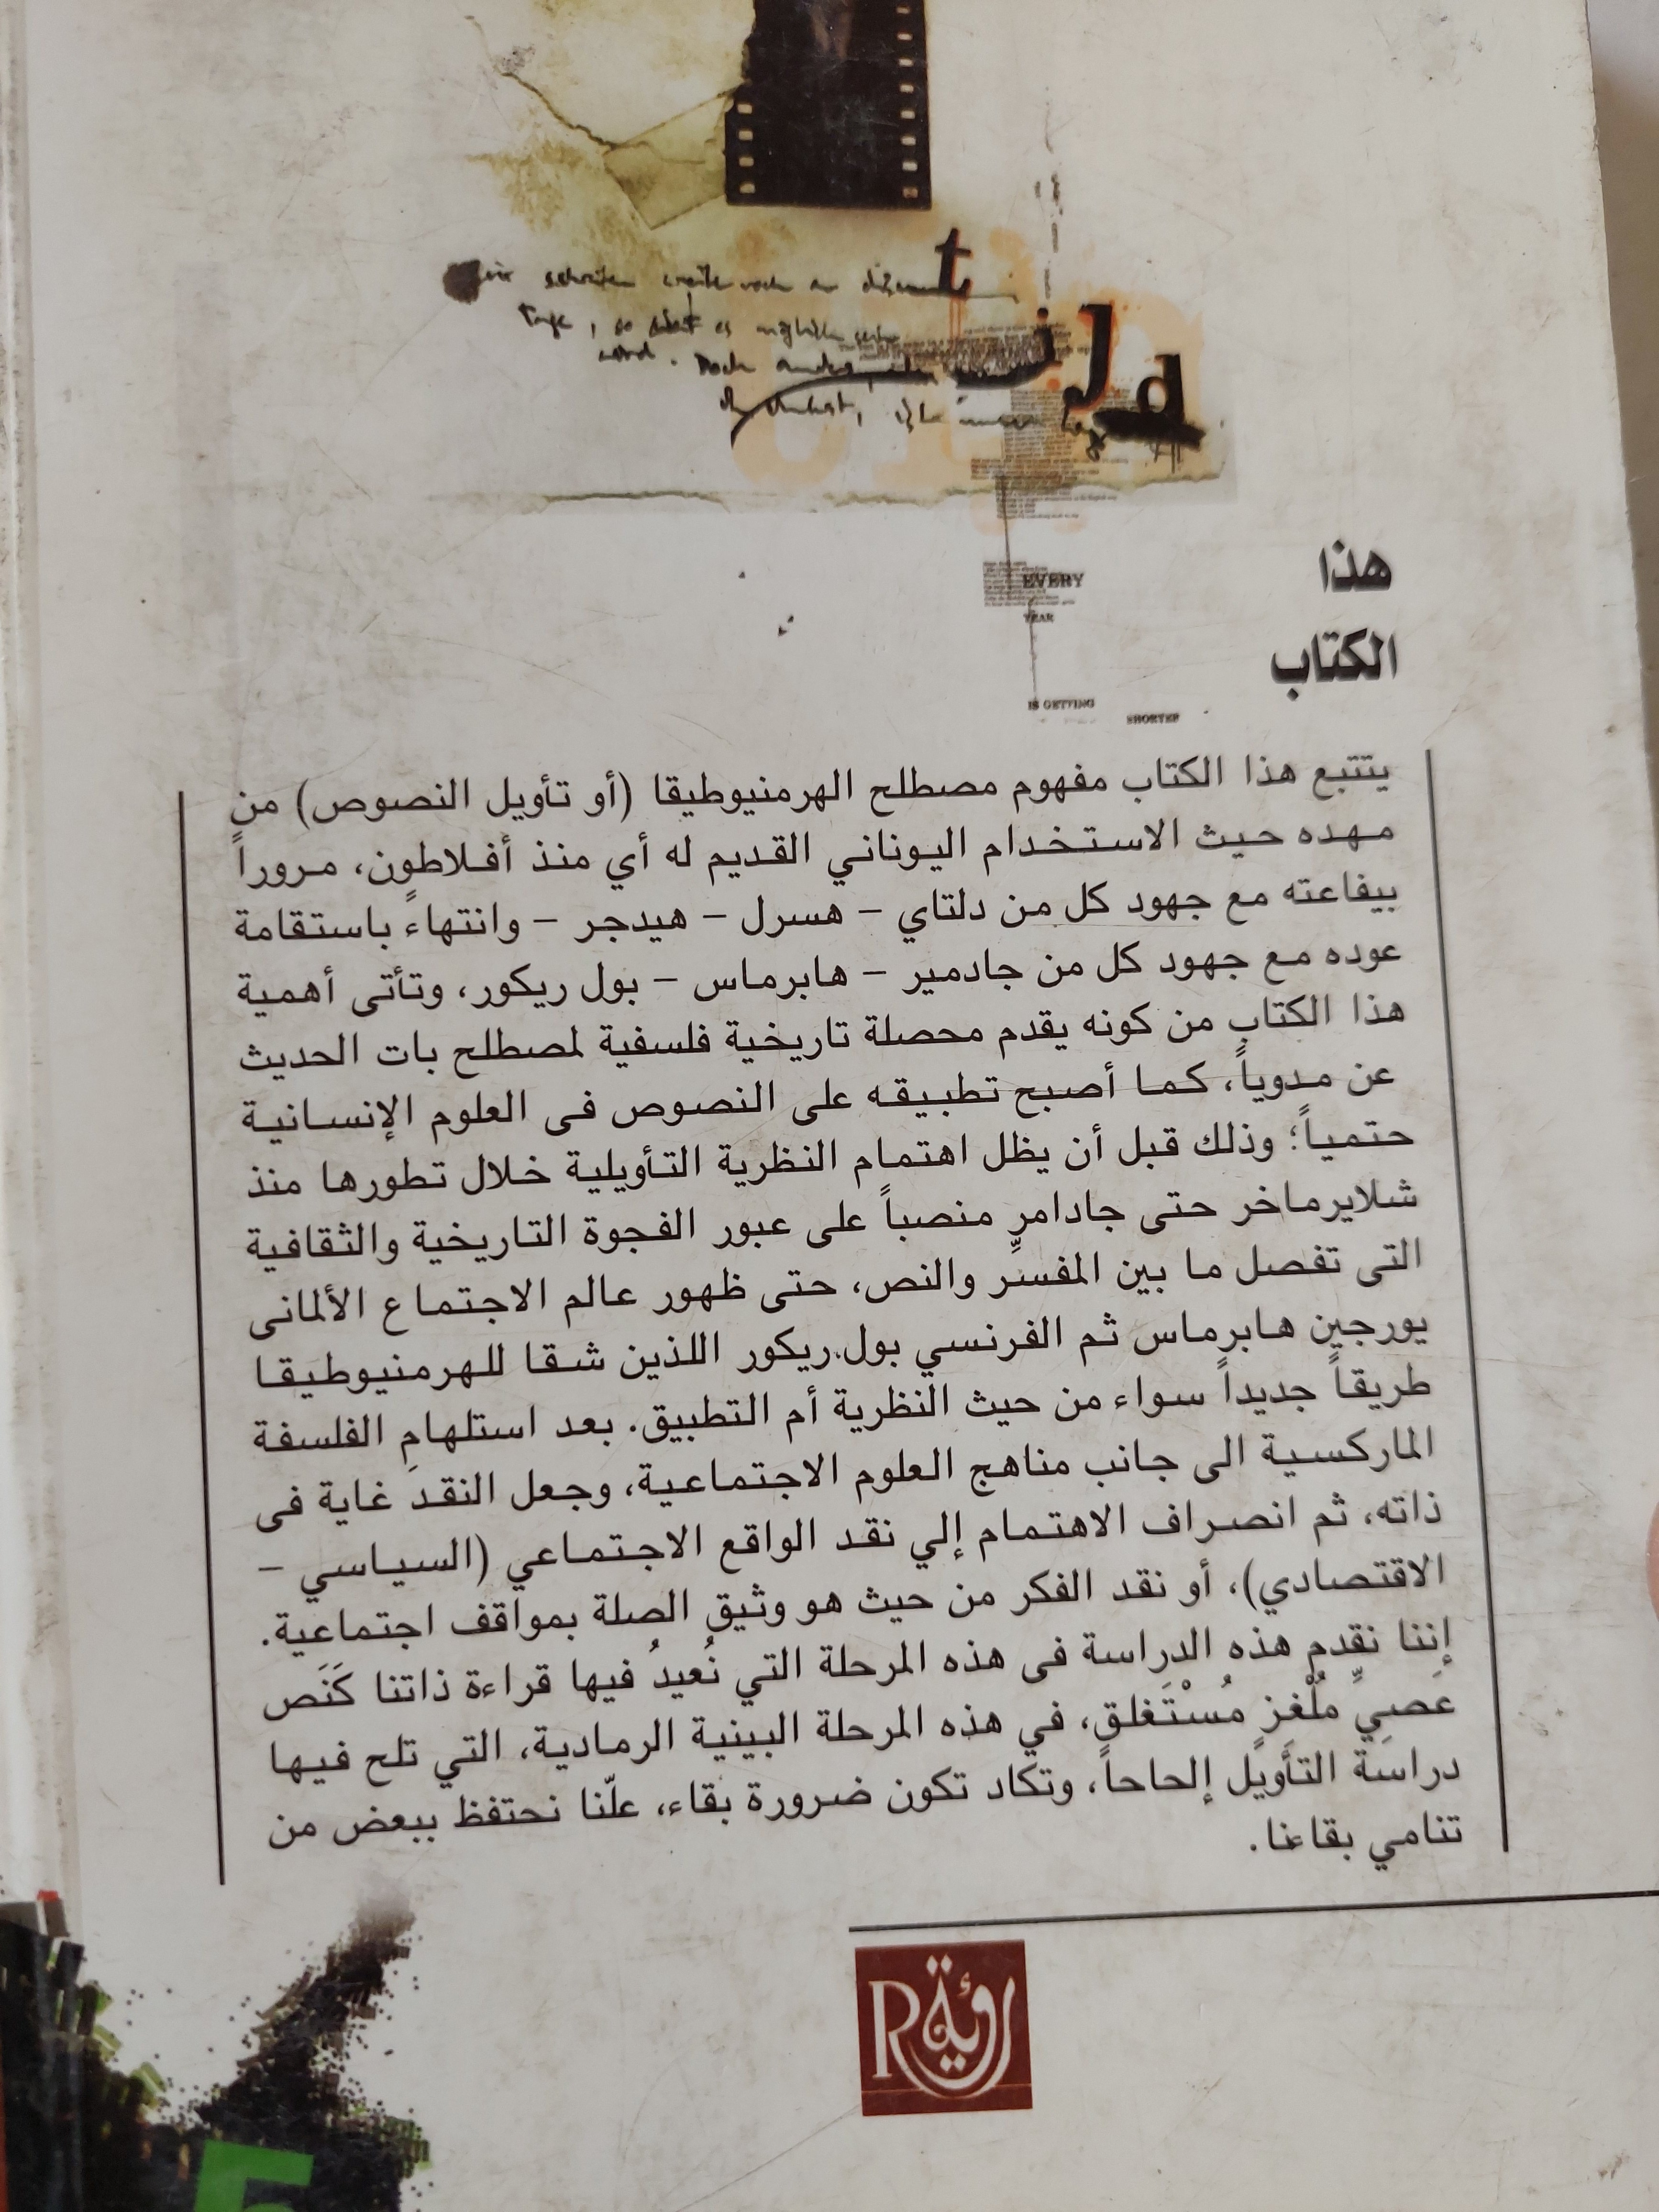 t
i
J
d
EVERY
YEAR
IS GETTING
SHORTER
هذا
الكتاب
يتتبع هذا الكتاب مفهوم مصطلح الهرمنيوطيقا (أو تأويل النصوص) من
مهده حيث الاستخدام اليوناني القديم له أي منذ أفلاطون، مروراً
بيفاعته مع جهود كل من دلتاي – هسرل – هيدجر – وانتهاءً باستقامة
عوده مع جهود كل من جادمير – هابرماس – بول ريكور، وتأتى أهمية
هذا الكتاب من كونه يقدم محصلة تاريخية فلسفية لمصطلح بات الحديث
عن مدوياً، كما أصبح تطبيقه على النصوص فى العلوم الإنسانية
حتمياً؛ وذلك قبل أن يظل اهتمام النظرية التأويلية خلال تطورها منذ
شلايرماخر حتى جادامر منصباً على عبور الفجوة التاريخية والثقافية
التى تفصل ما بين المفسِّر والنص، حتى ظهور عالم الاجتماع الألمانى
يورجين هابرماس ثم الفرنسي بول ريكور اللذين شقا للهرمنيوطيقا
طريقاً جديداً سواء من حيث النظرية أم التطبيق. بعد استلهام الفلسفة
الماركسية الى جانب مناهج العلوم الاجتماعية، وجعل النقد غاية فى
ذاته، ثم انصراف الاهتمام إلي نقد الواقع الاجتماعي (السياسي –
الاقتصادي)، أو نقد الفكر من حيث هو وثيق الصلة بمواقف اجتماعية.
إننا نقدم هذه الدراسة فى هذه المرحلة التي نُعيدُ فيها قراءة ذاتنا كَنَص
عَصِيٍّ مُلْغزٍ مُسْتَغلقٍ، في هذه المرحلة البينية الرمادية، التي تلح فيها
دراسة التأويل إلحاحاً، وتكاد تكون ضرورة بقاء، علّنا نحتفظ ببعض من
تنامي بقاءنا.
رؤية
R
5